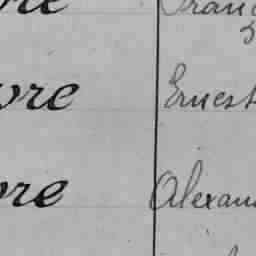 re Franc
3
vre Ernest
ore Alexan